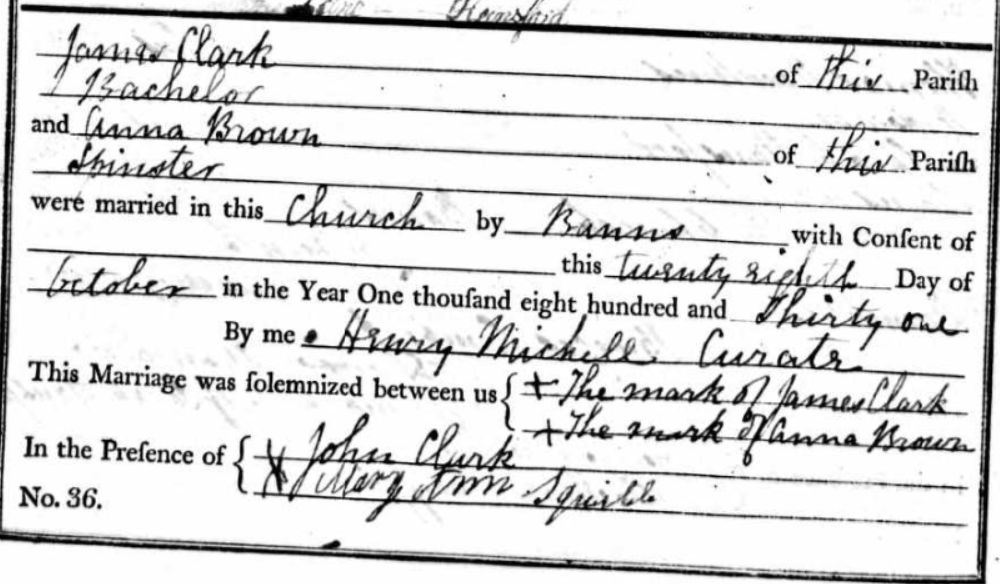 James Clark of this Pariſh
Bachelor
and Anna Brown of this Pariſh
Spinster
were married in this Church by Banns with Conſent of
this twenty eighth Day of
October in the Year One thouſand eight hundred and Thirty one
By me Henry Michell. Curate
This Marriage was ſolemnized between us { + The mark of James Clark
+ The mark of Anna Brown
In the Preſence of { John Clark
Mary Ann
No. 36.